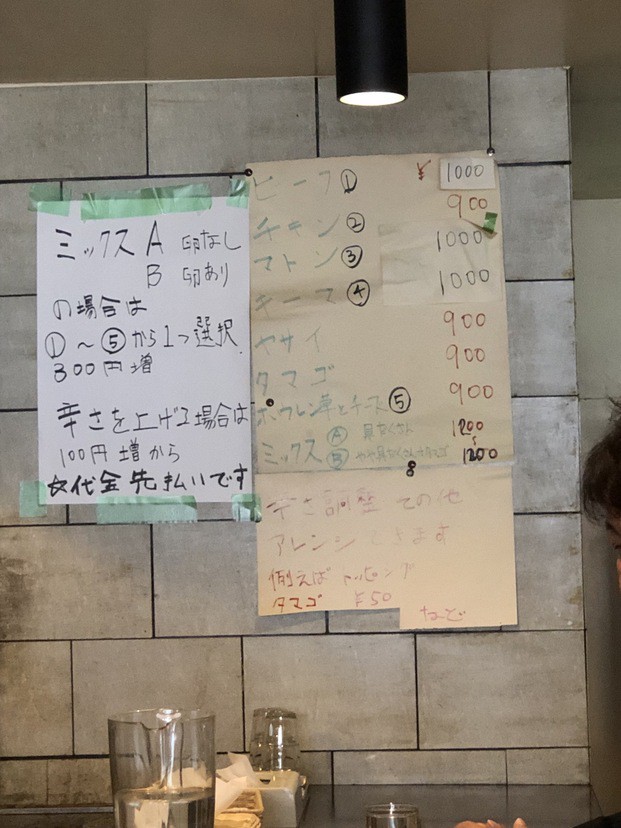 ミックス A 卵なし
B 卵あり
の場合は
①～⑤から1つ選択
300円増
辛さを上げる場合は
100円増から
お代金先払いです
ビーフ① ¥1000
チキン② 900
マトン③ 1000
キーマ④ 1000
ヤサイ 900
タマゴ 900
ホウレン草とチーズ⑤ 900
ミックス Ⓐ 具だくさん 1200
Ⓑ やや具だくさん+タマゴ 1200
辛さ調整 その他
アレンジできます
例えば トッピング
タマゴ ¥50
など